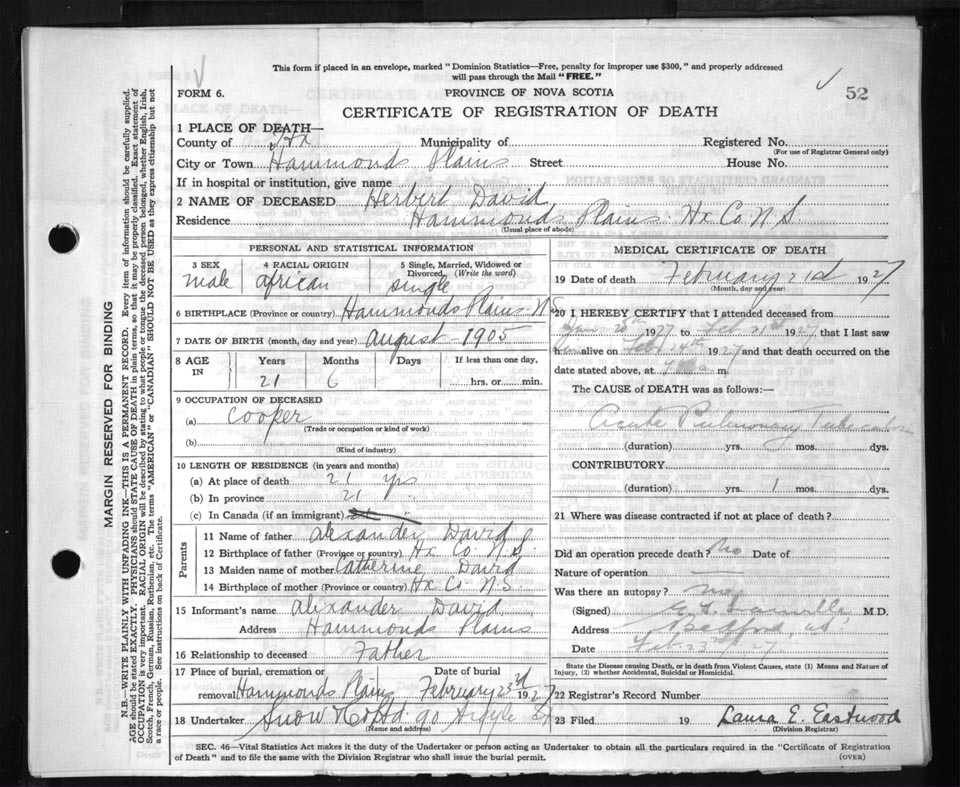 This form if placed in an envelope, marked "Dominion Statistics—Free, penalty for improper use $300," and properly addressed
will pass through the Mail "FREE."
FORM 6.
PROVINCE OF NOVA SCOTIA
52
CERTIFICATE OF REGISTRATION OF DEATH
1 PLACE OF DEATH—
County of Hx Municipality of Registered No.
(For use of Registrar General only)
City or Town Hammonds Plains Street House No.
If in hospital or institution, give name
2 NAME OF DECEASED Herbert David
Residence Hammonds Plains Hx Co N S
(Usual place of abode)
PERSONAL AND STATISTICAL INFORMATION
3 SEX 4 RACIAL ORIGIN 5 Single, Married, Widowed or Divorced (Write the word)
male african single
6 BIRTHPLACE (Province or country) Hammonds Plains N S
7 DATE OF BIRTH (month, day and year) august 1905
8 AGE IN Years Months Days If less than one day,
21 6 hrs. or min.
9 OCCUPATION OF DECEASED
(a) Cooper
(Trade or occupation or kind of work)
(b)
(Kind of industry)
10 LENGTH OF RESIDENCE (in years and months)
(a) At place of death 21 yrs
(b) In province 21 "
(c) In Canada (if an immigrant)
Parents
11 Name of father alexander David
12 Birthplace of father (Province or country) Hx Co N S
13 Maiden name of mother Catherine David
14 Birthplace of mother (Province or country) Hx Co N S
15 Informant's name alexander David
Address Hammonds Plains
16 Relationship to deceased Father
17 Place of burial, cremation or Date of burial
removal Hammonds Plains February 23rd 1927
18 Undertaker Snow & Co Ltd 90 Argyle St
(Name and address)
MEDICAL CERTIFICATE OF DEATH
19 Date of death February 21st 1927
(Month, day and year)
20 I HEREBY CERTIFY that I attended deceased from
Jan. 20th 1927 to Feb 21st 1927, that I last saw
alive on Feb 1927 and that death occurred on the
date stated above, at m.
The CAUSE of DEATH was as follows:—
Acute Pulmonary Tuberculosis
(duration) yrs. mos. dys.
CONTRIBUTORY
(duration) yrs. 1 mos. dys.
21 Where was disease contracted if not at place of death?
Did an operation precede death? No Date of
Nature of operation
Was there an autopsy? no
(Signed) M.D.
Address Bedford, NS
Date Feb. 23rd 27
State the Disease causing Death, or in death from Violent Causes, state (1) Means and Nature of
Injury, (2) whether Accidental, Suicidal or Homicidal.
22 Registrar's Record Number
23 Filed 19 Laura E. Eastwood
(Division Registrar)
SEC. 46—Vital Statistics Act makes it the duty of the Undertaker or person acting as Undertaker to obtain all the particulars required in the "Certificate of Registration
of Death" and to file the same with the Division Registrar who shall issue the burial permit.
(OVER)
MARGIN RESERVED FOR BINDING
N.B.—WRITE PLAINLY WITH UNFADING INK—THIS IS A PERMANENT RECORD. Every item of information should be carefully supplied.
AGE should be stated EXACTLY. PHYSICIANS should STATE CAUSE OF DEATH in plain terms, so that it may be properly classified. Exact statement of
OCCUPATION is very important. RACIAL ORIGIN will be described by stating to what people or tongue the deceased person belonged, whether English, Irish,
Scotch, French, German, Russian, Ruthenian, etc. The terms "AMERICAN" or "CANADIAN" SHOULD NOT BE USED as they express citizenship but not
a race or people. See instructions on back of Certificate.